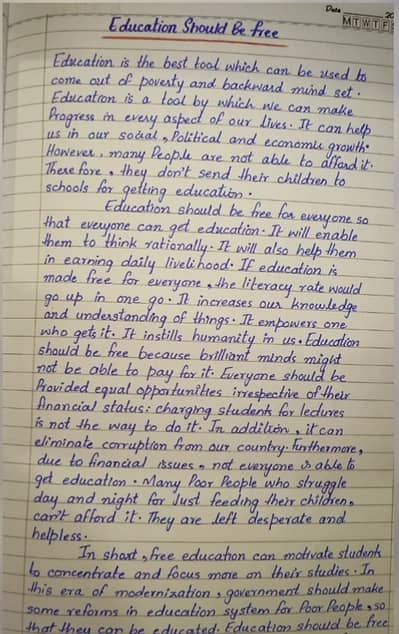 Date 20
M T W T F
Education Should be free
Education is the best tool which can be used to
come out of poverty and backward mind set.
Education is a tool by which we can make
Progress in every aspect of our lives. It can help
us in our social, Political and economic growth.
However, many People are not able to afford it.
There fore, they don't send their children to
schools for getting education.
Education should be free for everyone so
that everyone can get education. It will enable
them to think rationally. It will also help them
in earning daily livelihood. If education is
made free for everyone, the literacy rate would
go up in one go. It increases our knowledge
and understanding of things. It empowers one
who gets it. It instills humanity in us. Education
should be free because brilliant minds might
not be able to pay for it. Everyone should be
Provided equal opportunities irrespective of their
financial status: charging students for lectures
is not the way to do it. In addition, it can
eliminate corruption from our country. Furthermore,
due to financial issues, not everyone is able to
get education. Many Poor People who struggle
day and night for Just feeding their children,
can't afford it. They are left desperate and
helpless.
In short, free education can motivate students
to concentrate and focus more on their studies. In
this era of modernization, government should make
some reforms in education system for Poor People, so
that they can be educated. Education should be free